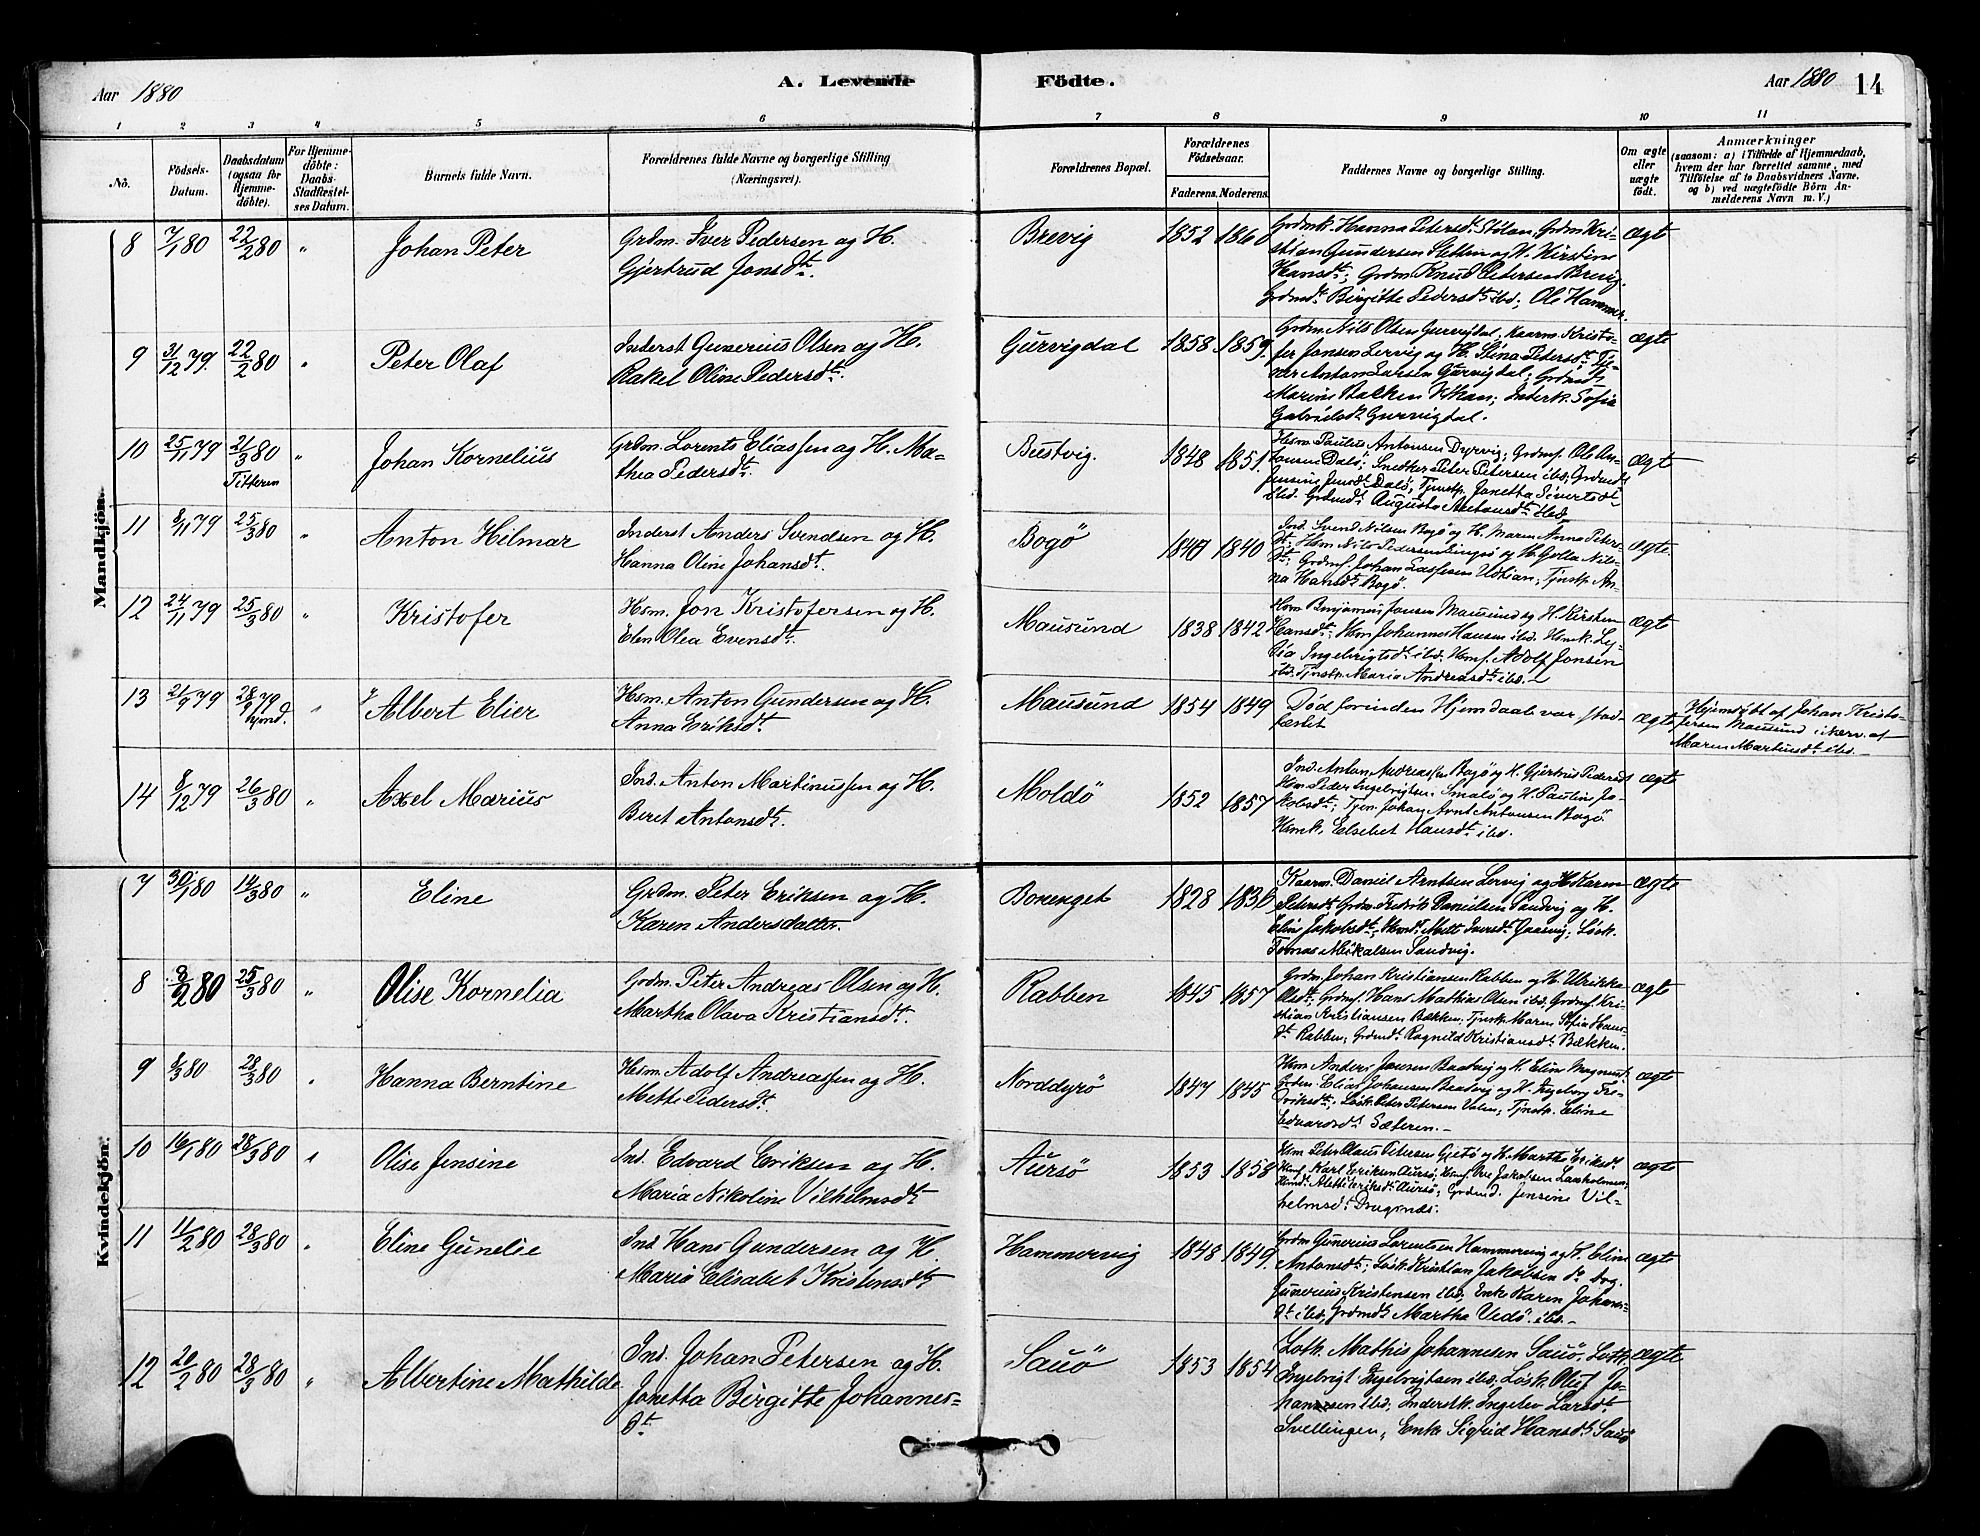 Aar 1880
A. Levende
Födte.
Aar 1880
14
1 2 3 4 5 6 7 8 9 10 11
No.
Födsels-
Datum.
Daabsdatum
(ogsaa for
Hjemme-
döbte).
For Hjemme-
döbte:
Daabs-
Stadfæstel-
ses Datum.
Barnets fulde Navn.
Forældrenes fulde Navne og borgerlige Stilling
(Næringsvei).
Forældrenes Bopæl.
Forældrenes
Födselsaar.
Faderens. Moderens.
Faddernes Navne og borgerlige Stilling.
Om ægte
eller
uægte
födt.
Anmærkninger
(saasom: a) i Tilfælde af Hjemmedaab,
hvem der har forrettet samme, med
Tilföielse af to Daabsvidners Navne,
og b) ved uægtefödte Börn An-
melderens Navn m. V.)
Mandkjön.
8 7/1 80 22/2 80 " Johan Peter
Grdm. Iver Pedersen og H.
Gjertrud Jonsdt.
Brevig 1852 1860
Grdmk. Hanna Petersdt Stölan, Grdm Kri-
stian Gundersen Slettin og H. Kirstine
Hansdt; Grdm. Knud Petersen Brevig.
Grdmdt. Birgitte Pedersdt ibd; Ole Hammer
ægt
9 31/12 79. 22/2 80 " Peter Olaf
Inderst Gunerius Olsen og H.
Rakel Oline Pedersdt.
Gurvigdal 1858. 1859.
Grdm. Nils Olsen Gurvigdal, Kaarm. Kristo-
fer Jansen Lervig og H. Stina Pedersdt.
Anton Larsen Gurvigdal; Grdmdt.
Marius Inderk. Sofia
Gurvigdal.
ægte
10 25/11 79 21/3 80 Titteren " Johan Kornelius
Grdm. Lorents Eliassen og H. Ma-
thea Pedersdt.
Bustvig. 1848 1851.
Hsm. Paulus Antonsen Dyrvig; Grdmf. Ole An-
tonsen Dalö; Snedker Peter Petersen ibd; Grdmdt
Jensine Jensdt Dalö; Tjnstp. Janetta Sivertsdt
ibd. Grdmdt. Augusta Antonsdt ibd.
ægte
11 8/11 79 25/3 80 " Anton Hilmar
Inderst Anders Svendsen og H.
Hanna Oline Johansdt.
Bogö 1847 1840
Ind. Svend Nilsen Bogö og H. Maren Anna Peters-
dt; Hsm Nils Pedersen og H. Golla Nils-
dt; Grdmf. Johan Lassesen Udtian; Tjnstp. An-
na Hansdt. Bogö.
ægte.
12 24/11 79 25/3 80 " Kristofer
Hsm. Jon Kristofersen og H.
Elen Olea Evensdt.
Mausund 1838 1842
Hsm Benjamin Jansen Mausund og H. Kirsten
Hansdt; Hsm Johannes Hansen ibd. Hsmk. Ly-
dia Ingebrigtsdt ibd. Hsmf. Adolf Jonsen
ibd. Tjnstp. Maria Andreasdt ibd.
ægte
13 21/9 79 28/9 79 hjemd. " Albert Elier
Hsm. Anton Gundersen og H.
Anna Eriksdt.
Mausund 1854 1849
Död forinden Hjemdaab var stad-
fæstet
ægte
Hjemdöbt af Johan Kristo-
fersen Mausund i nærv. af
Maren Martinsdt ibd.
14 8/12 79 26/3 80 " Axel Marius
Ind. Anton Martinussen og H.
Beret Antonsdt.
Moldö 1852 1857
Ind. Anton Andreassen Bogö og H. Gjertrud Pedersdt
Hsm. Peder Ingebrigtsen Smalö og H. Pauline Ja-
kobsdt; Tjen. Johan Arnt Antonsen Bogö
Hsmk. Elsebet Hansdt ibd.
ægte
Kvindekjön.
7 30/1 80 14/3 80 " Eline
Grdm. Peter Eriksen og H.
Karen Andersdatter.
Borenget 1828 1836
Kaarm. Daniel Arntsen Lervig og H Karen
Petersdt. Grdm. Fredrik Danielsen Sandvig og H.
Elen Jakobsdt; Hsmdt. Mett Iversdt; Lösk.
Tomas Mikalsen Sandvig.
ægte
8 8/2 80 25/3 80 " Olise Kornelia
Grdm. Peter Andreas Olsen og H.
Martha Olava Kristiansdt.
Rabben 1845 1857
Grdm. Johan Kristiansen Rabben og H. Ulrikke
Olsdt; Grdmf. Hans Mathias Olsen ibd. Grdmf. Kri-
stian Kristiansen Bækken, Tjnstp. Maren Sofia Hans-
dt. Rabben; Grdmdt. Ragnild Kristiansdt. Bækken.
ægte
9 8/3 80 28/3 80 " Hanna Berntine
Hsm. Adolf Andreassen og H.
Mette Pedersdt.
Norddyrö 1847 1845
Hsm Anders Jansen og H. Eline
Grdm. Elias Johansen og H. Ingeborg Fre-
driksdt; Lösk. Peter Petersen Valen; Tjnstp. Eline
Edvardsdt Sæteren.
ægte
10 16/1 80 28/3 80 " Olise Jensine
Ind. Edvard Eriksen og H.
Maria Nikoline Vilhelmsdt.
Aursö 1853 1858
Hsm Peter Olaus Petersen Gjetö og H. Marthe Eriksdt
Hsmf. Karl Eriksen Aursö; Hsmf. Ove Jakobsen
Hsmdt. Mette Eriksdt Aursö; Grdmd. Jensine Vil-
helmsdt Dragsnæs.
ægte
11 11/2 80 28/3 80 " Eline Gunelie
Ind Hans Gundersen og H.
Maria Elisabet Kristensdt.
Hammervig 1848 1849.
Grdm Gunerius Lorentsen Hammervig og H. Eline
Antonsdt; Lösk. Kristian Jakobsen do og
Gunerius Kristensen ibd; Enke Karen Johans-
dt ibd; Grdmdt Martha Vedö ibd.
ægte
12 20/2 80 28/3 80 " Albertine Mathilde
Ind. Johan Petersen og H.
Janetta Birgitte Johannes-
dt.
Sauö 1853 1854
Loth. Mathis Johannesen Sauö. Loth.
Ingebrigt Ingebrigtsen ibd; Lösk. Oluf Jo-
hannesen ibd; Inderstk. Ingelev Larsdt
Svellingen; Enke Sigrid Hansdt Sauö
ægte